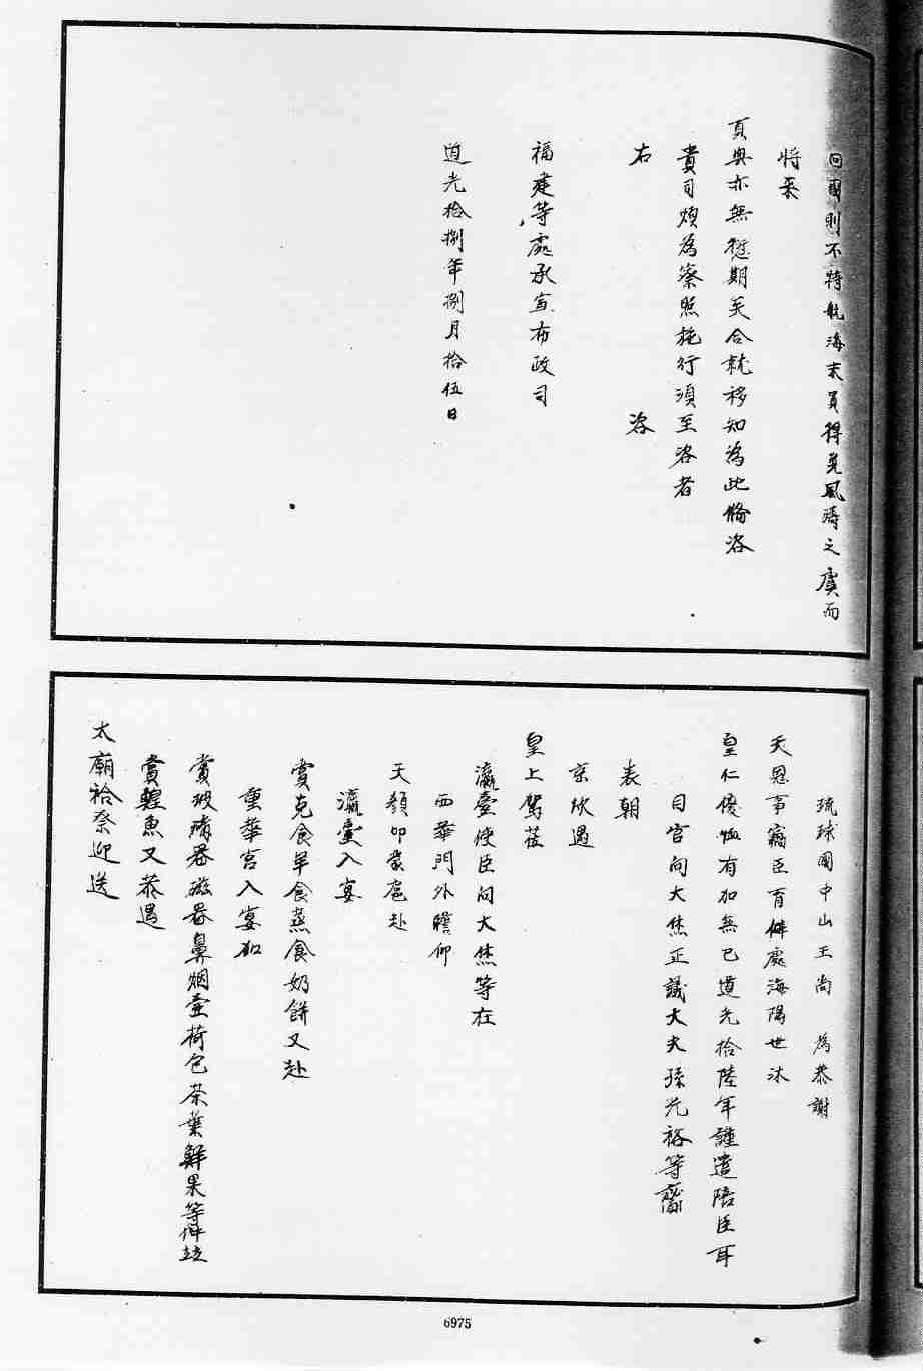 回國則不特航海末員得免風濤之虞而
將來
貢典亦無愆期矣合就移知為此俻咨
貴司煩為察照施行須至咨者
右 咨
福建等處承宣布政司
道光拾捌年捌月拾伍日
琉球國中山王尚 為恭謝
天恩事竊臣育僻處海隅世沐
皇仁優恤有加無已道光拾陸年謹遣陪臣耳
目官向大烋正議大夫孫光裕等齎
表朝
京欣遇
皇上駕莅
瀛臺使臣向大烋等在
西華門外瞻仰
天顏叩蒙扈赴
瀛臺入宴
賞克食羊食蒸食奶餅又赴
重華宮入宴加
賞玻璃器磁器鼻烟壺荷包茶葉鮮果等件竝
賞鰉魚又恭遇
太廟祫祭迎送
6975